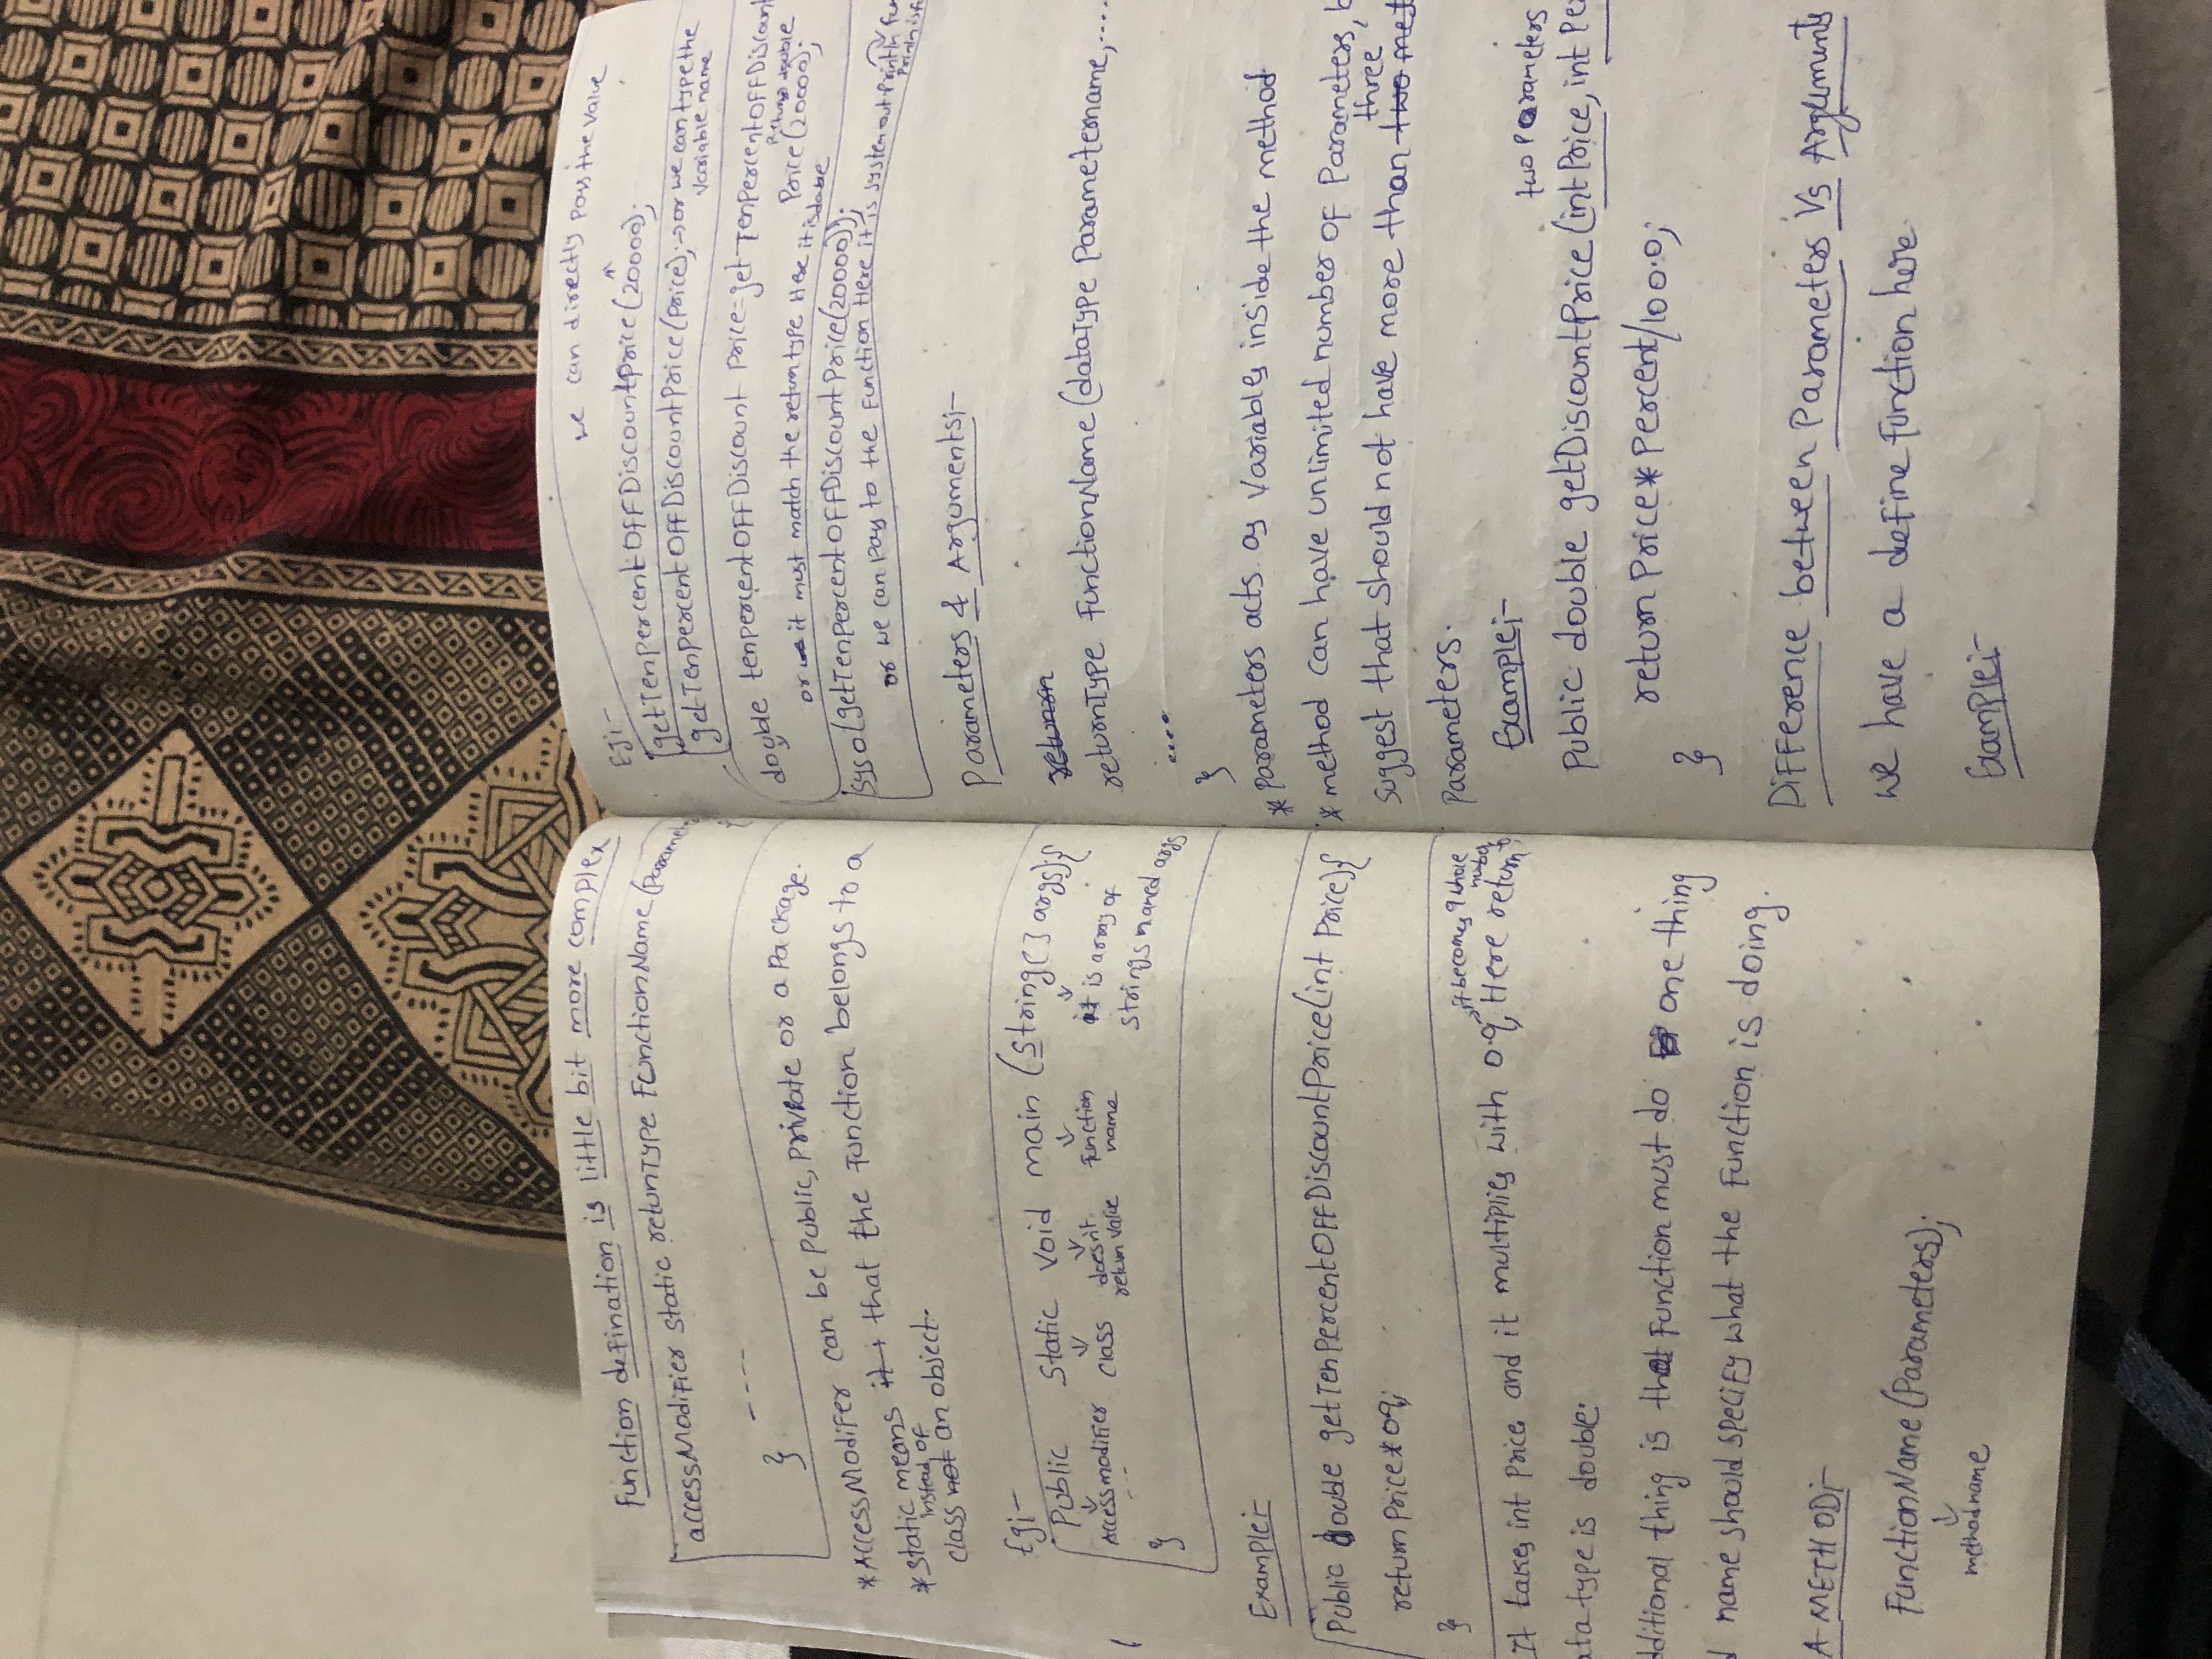 Function defination is little bit more complex
accessModifier static retunType FunctionName (Paramete
{
----
}
*AccessModifer can be Public, Private or a Package.
*static means it i that the Function belongs to a
instead of
class not an object.
Eg:-
Public Static void main (String[] args){
Access modifier class doesn't return value function name it is array of strings named args
---
}
Example:-
Public double getTenPercentOFFDiscountPrice(int Price){
return Price*09;
}
it becomes 9 whole number
It takes int Price and it multiplies with 0.9, Here return
ata type is double.
dditional thing is that Function must do one thing
d name should specify what the Function is doing.
A METHOD:-
FunctionName (Parameters);
method name
we can directly pass the value
Eg:-
getTenpercentOFFDiscountprice(20000);
getTenPercentOFFDiscountPrice(Price); → or we can type the
Variable name
double tenpercentOFFDiscount Price=get TenPercentOFFDiscount
Returns double
Price(20000);
or we it must match the return type Here it is double
Syso(getTenpercentOFFDiscount Price(20000));
or we can pass to the Function Here it is System out Println fun
Println is fu
Parameters & Arguments:-
retunrn
returnType FunctionName (dataType Parametername,....
....
}
*Parameters acts as Variables inside the method
*method can have unlimited number of Parameters, b
three
suggest that should not have more than two met
Parameters.
Example:-
two Parameters
Public double getDiscountPrice (int Price, int Per
return Price*Percent/100.0;
}
Difference between Parameters Vs Arguments
we have a define function here.
Example:-